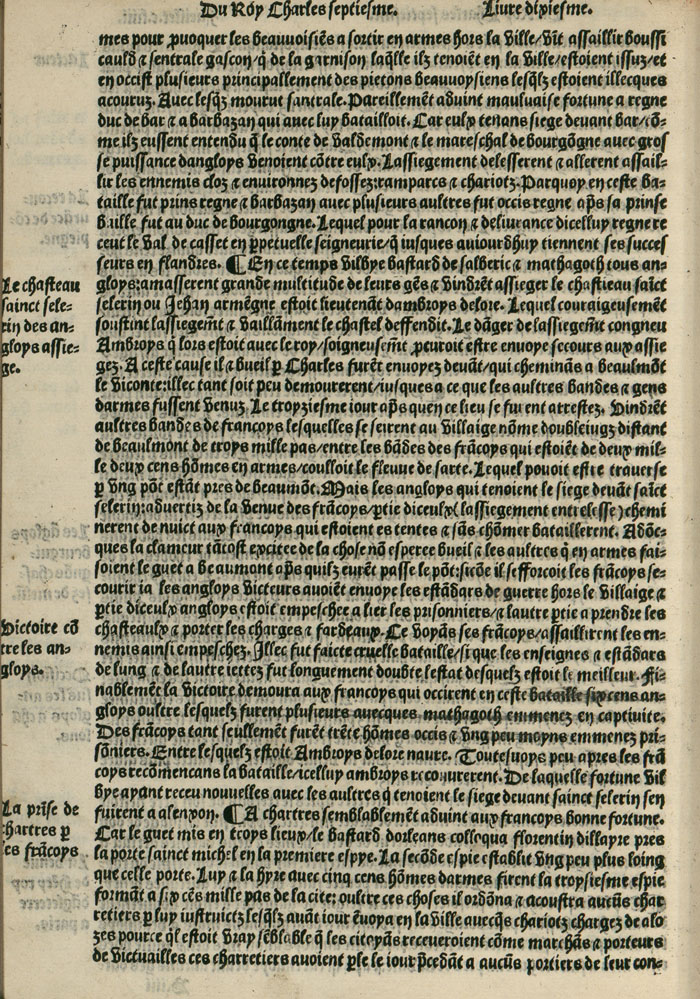 Du Roy Charles septiesme.
Liure dixiesme.
mes pour ꝓuoquer les beauuoisiẽs a sortir en armes hors la ville/vĩt assaillir boussi
cauld ⁊ sentrale gascon/q̃ de la garnison laq̃lle ilz tenoiẽt en la ville/estoient issuz/et
en occist plusieurs principallement des pietons beauuoysiens lesq̃lz estoient illecques
acouruz. Auec lesq̃lz mourut santrale. Pareillemẽt aduint mauluaise fortune a regne
duc de bar ⁊ a barbazan qui auec luy batailloit. Car eulx tenans siege deuant bar/cõ-
me ilz eussent entendu q̃ le conte de valdemont ⁊ le mareschal de bourgõgne auec gros
se puissance dangloys venoient cõtre eulx. Lassiegement delesserent ⁊ allerent assail-
lir les ennemis cloz ⁊ enuironnez defossez:ramparcs ⁊ chariotz. Parquoy en ceste ba-
taille fut prins regne ⁊ barbazan auec plusieurs aultres fut occis regne ap̃s sa prinse
baille fut au duc de bourgongne. Lequel pour la rancon ⁊ deliurance dicelluy regne re
ceut le val de casset en ꝑpetuelle seigneurie/q̃ iusques auiourdhuy tiennent ses succes
seurs en flandres. ¶ En ce temps vilbye bastard de salberic ⁊ mathagoth tous an-
gloys:amasserent grande multitude de leurs gẽs ⁊ vindrẽt assieger le chastieau saĩct
selerin ou Jehan armẽgne estoit lieutenãt dambroys delore. Lequel couraigeusemẽt
soustint lassiegem̃t ⁊ vaillãment le chastel deffendit. Le dãger de lassiegem̃t congneu
Ambroys q̃ lors estoit auec le roy/soigneusem̃t ꝓcuroit estre enuoye secours aux assie
gez. A ceste cause il ⁊ bueil ꝑ Charles furẽt enuoyez deuãt/qui cheminãs a beaulmõt
le viconte:illec tant soit peu demourerent/iusques a ce que les aultres bandes ⁊ gens
darmes fussent venuz. Le troyziesme iour ap̃s quen ce lieu se furent arrestez. Vindrẽt
aultres bandes de francoys lesquelles se seirent au villaige nõme doubleiugz distant
de beaulmont de troys mille pas/entre les bãdes des frãcoys qui estoiẽt de deux mil-
le deux cens hõmes en armes/coulloit le fleuue de sarte. Lequel pouoit estre trauerse
ꝑ vng põt estãt pres de beaumõt. Mais les angloys qui tenoient le siege deuãt saĩct
selerin:aduertiz de la venue des frãcoys/ꝑtie diceulx(lassiegement entrelesse)chemi
nerent de nuict aux francoys qui estoient es tentes ⁊ sãs chõmer bataillerent. Adõc-
ques la clameur tãtost excitee de la chose nõ esperee bueil ⁊ les aultres q̃ en armes fai-
soient le guet a beaumont ap̃s quilz eurẽt passe le põt:sicõe il sefforcoit les frãcoys se-
courir ia les angloys victeurs auoiẽt enuoye les estãdars de guerre hors le villaige ⁊
ꝑtie diceulx angloys estoit empeschee a lier les prisonniers/⁊ lautre ꝑtie a prendre les
chasteaulx ⁊ porter les charges ⁊ fardeaux. Ce voyãs ses frãcoys/assaillirent les en-
nemis ainsi empeschez. Illec fut faicte cruelle bataille/si que les enseignes ⁊ estãdars
de lung ⁊ de lautre iettez fut longuement doubte lestat desquelz estoit le meilleur. Fi-
nablemẽt la victoire demoura aux francoys qui occirent en ceste bataille six cens an-
gloys oultre lesquelz furent plusieurs auecques mathagoth emmenez en captiuite.
Des frãcoys tant seullement furẽt trẽte hõmes occis ⁊ vng peu moyns emmenez pri-
sõniers. Entre lesquelz estoit Ambroys delore naure. Toutesuoys peu apres les frã
coys recõmencans la bataille/icelluy ambroys recouurerent. De laquelle fortune vil
bye ayant receu nouuelles auec les aultres q̃ tenoient le siege deuant sainct selerin sen
fuirent a alenxon. ¶ A chartres semblablemẽt aduint aux francoys bonne fortune.
Car le guet mis en troys lieux/le bastard dorleans colloqua florentin dillayre pres
la porte sainct michel en la premiere espye. La secõde espie establit vng peu plus loing
que celle porte. Luy ⁊ la hyre auec cinq cens hõmes darmes firent la troysiesme espie
formãt a six cẽs mille pas de la cite: oultre ces choses il ordõna ⁊ acoustra aucũs char
retiers ꝑ luy iustruictz lesq̃lz auãt iour ẽuoya en la ville auecq̃s chariotz chargez de alo
zes pource q̃l estoit vray sẽblable q̃ les citoyãs receueroient cõme marchãs ⁊ porteurs
de victuailles ces charretiers auoient ꝑle le iour p̃cedãt a aucũs portiers de leur con-
Le chasteau
sainct sele-
rin des an-
gloys assie-
ge.
Victoire cõ
tre les an-
gloys.
La prĩse de
chartres ꝑ
les frãcoys